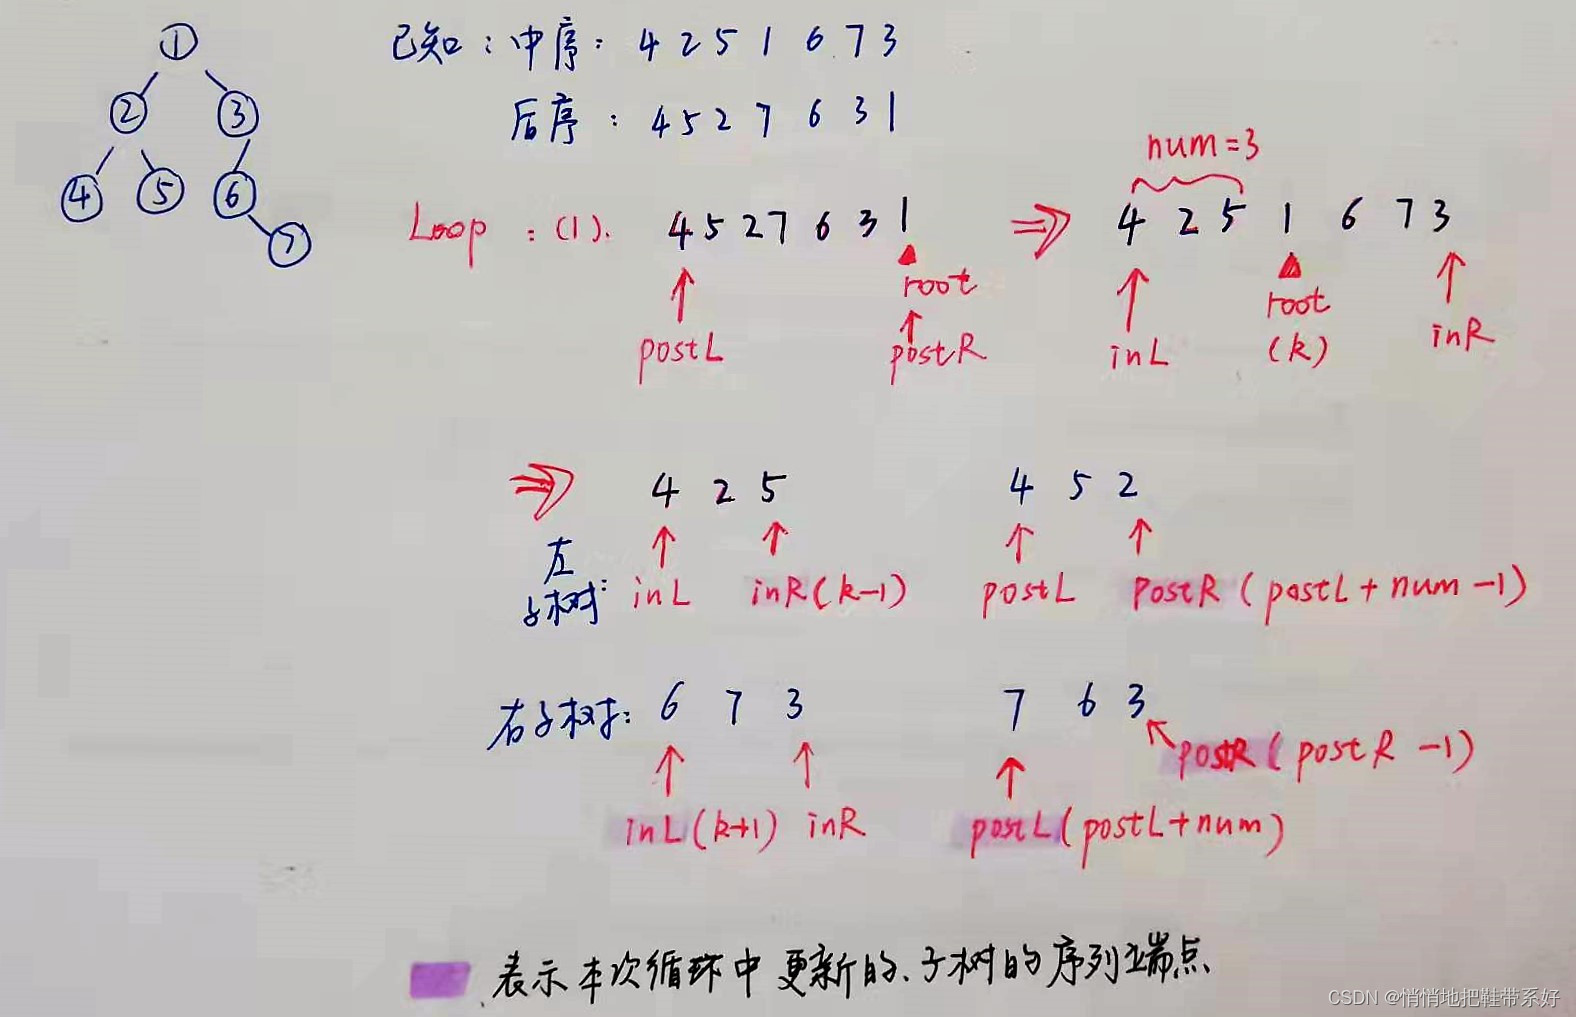 ①
② ③
④ ⑤ ⑥
⑦
已知：中序：4 2 5 1 6 7 3
后序：4 5 2 7 6 3 1
num=3
Loop：(1). 4 5 2 7 6 3 1 ⇒ 4 2 5 1 6 7 3
root root
postL postR inL (k) inR
⇒ 4 2 5 4 5 2
左
子树: inL inR(k-1) postL postR(postL+num-1)
右子树: 6 7 3 7 6 3
postR(postR-1)
inL(k+1) inR postL(postL+num)
表示本次循环中更新的、子树的序列端点
CSDN @悄悄地把鞋带系好